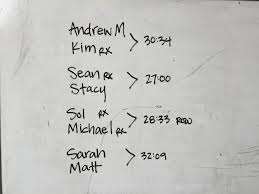 Andrew M
Kim RX > 30:34
Sean RX
Stacy > 27:00
Sol RX
Michael RX > 28:33
Sarah
Matt > 32:09